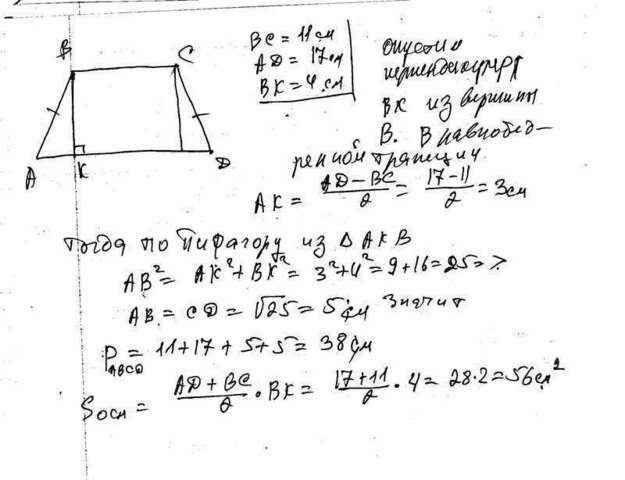 B C
A K D
BC = 11 см
AD = 17 см
BK = 4 см
опустим
перпендикуляр
BK из вершины
B. В равнобед–
ренной трапеции
AK = (AD – BC)/2 = (17 – 11)/2 = 3 см
Тогда по Пифагору из △ AKB
AB² = AK² + BK² = 3² + 4² = 9 + 16 = 25 =>
AB = CD = √25 = 5 см Значит
P ABCD = 11 + 17 + 5 + 5 = 38 см
Sосн = (AD + BC)/2 · BK = (17 + 11)/2 · 4 = 28 · 2 = 56 см²